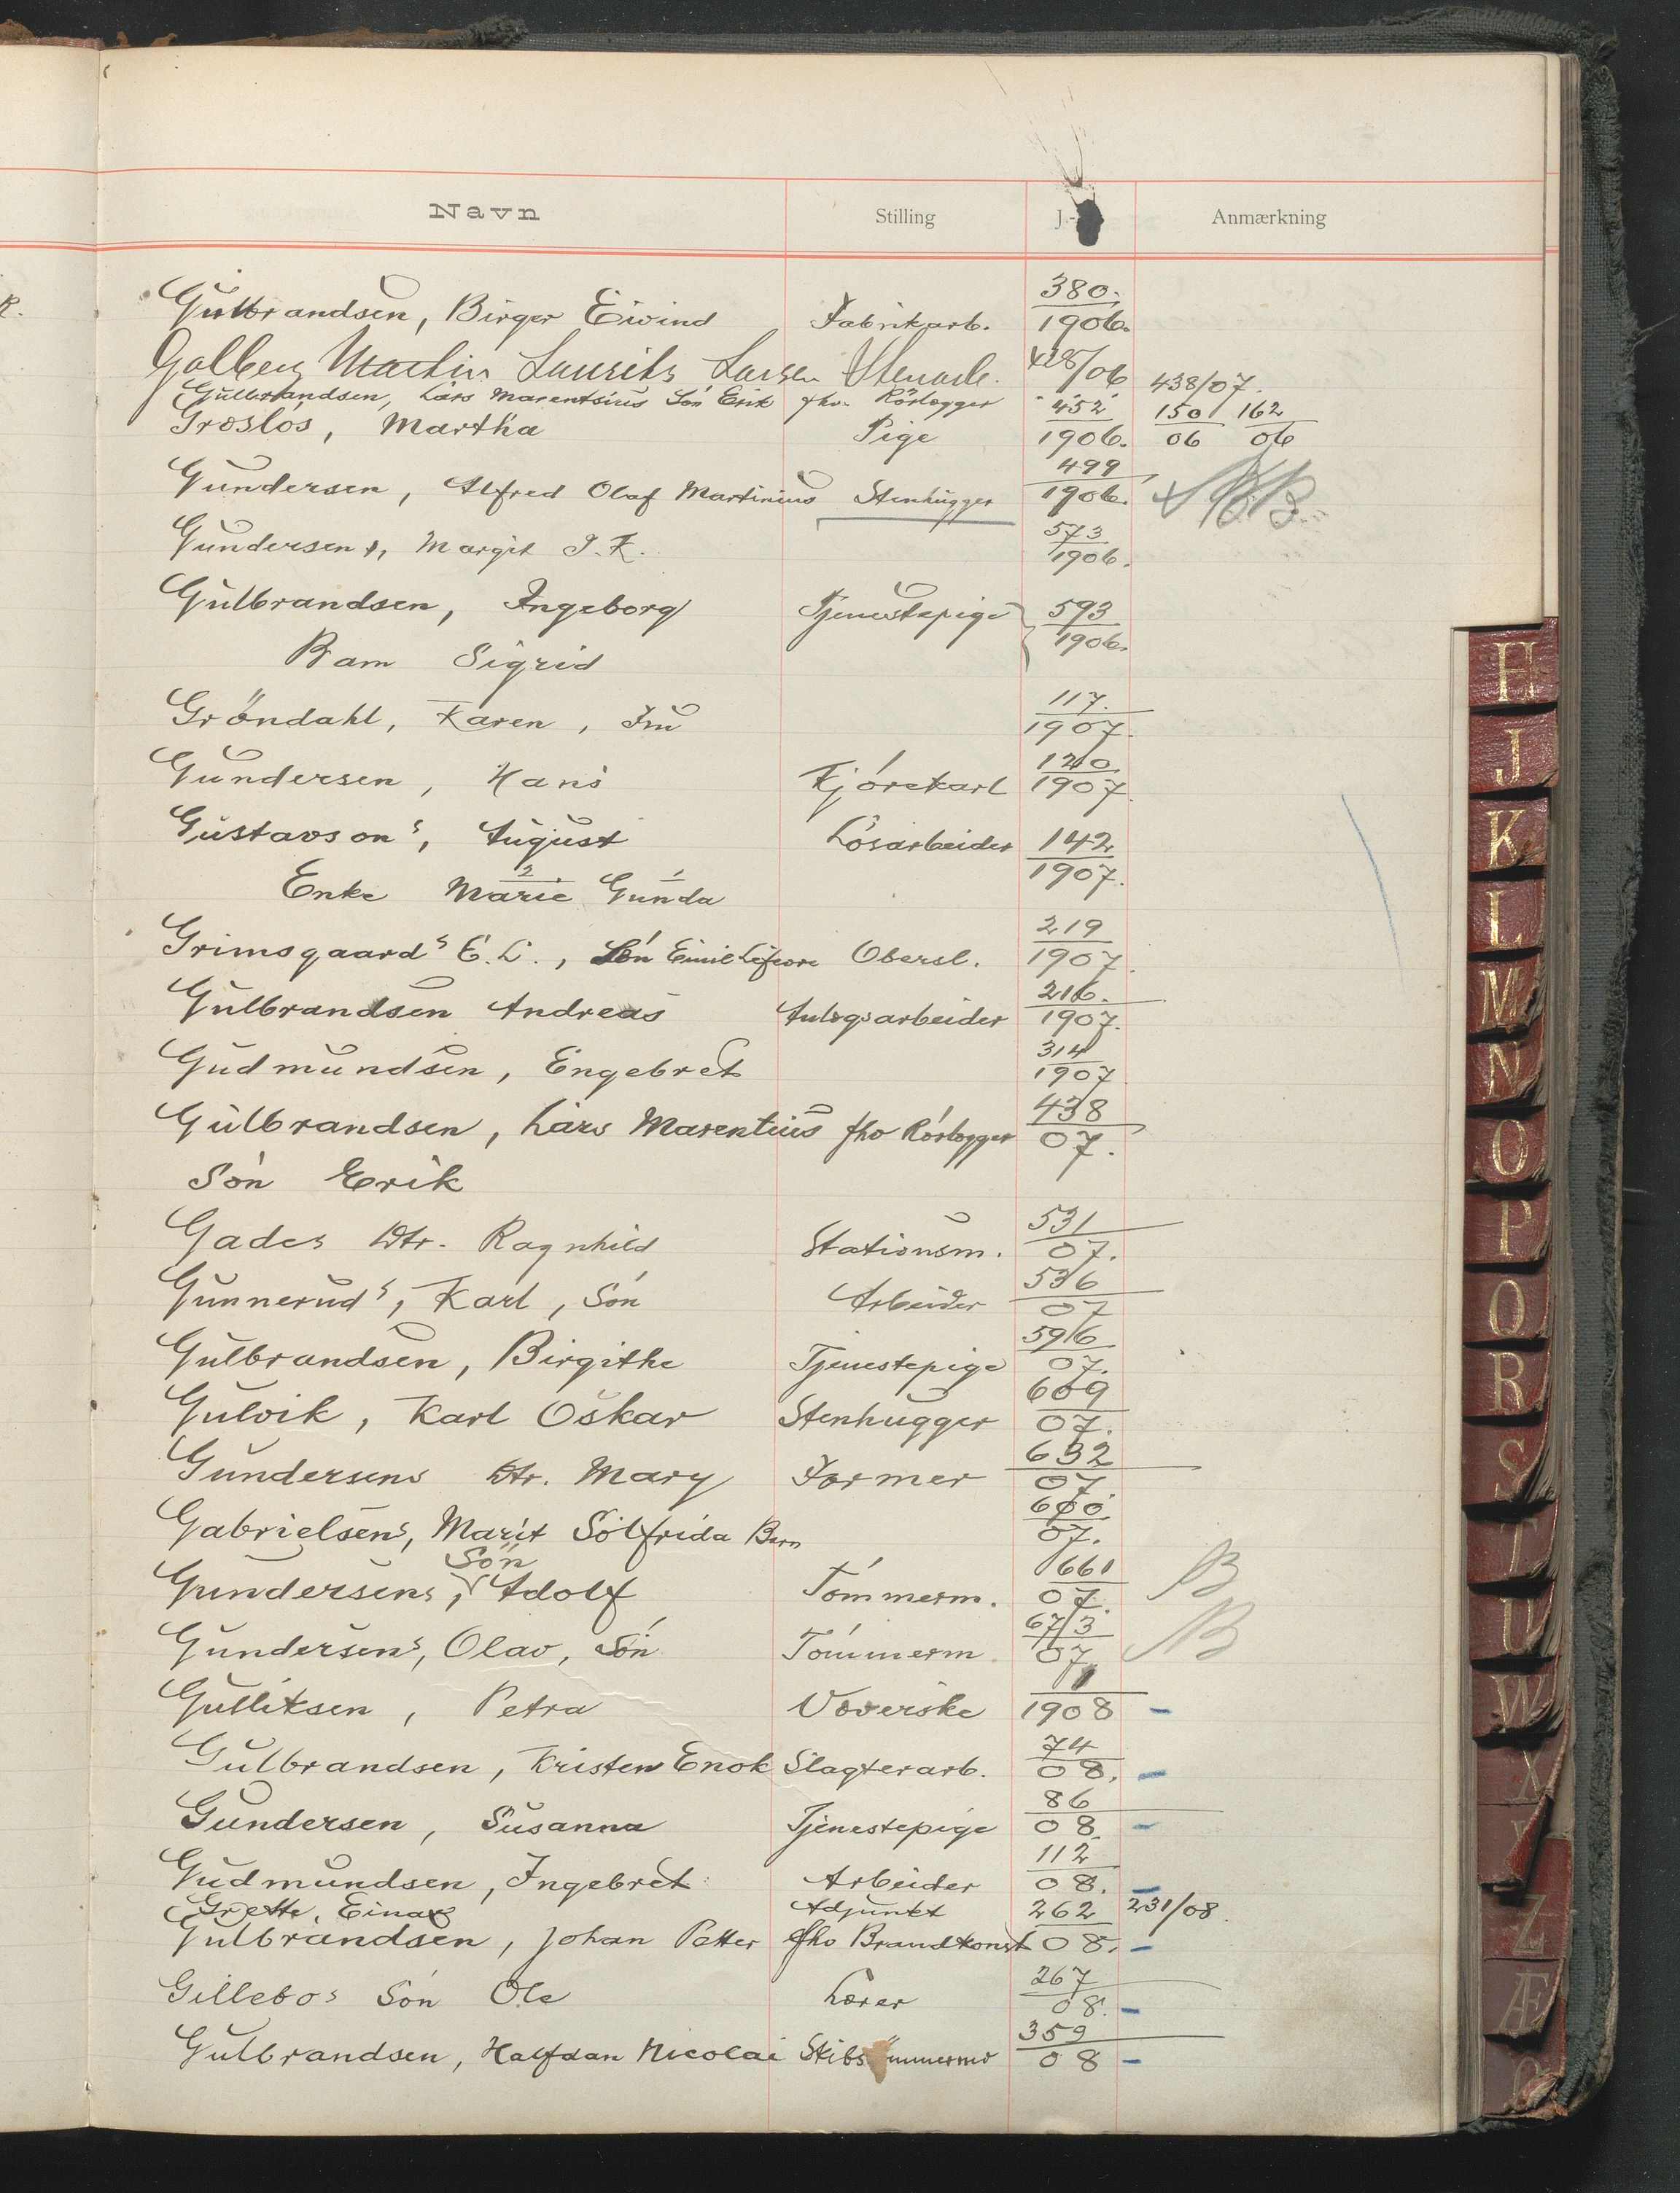 Navn Stilling J.- Anmærkning
Gulbrandsen, Birger Eivind Fabrikarb. 380/1906.
Golberg Martin Laurits Larsen Stenarb. 428/06 438/07.
Gulbrandsen, Lars Marentsius Søn Erik fhv. Rørlægger
Grøslos, Martha Pige 452/1906. 150/06 162/06
Gundersen, Alfred Olaf Martinius Stenhugger 499/1906.
Gundersen, Margit J. K. 573/1906.
Gulbrandsen, Ingeborg Tjenestepige 593/1906.
Barn Sigrid
Gröndahl, Karen, Fru 117./1907.
Gundersen, Hans Kjórekarl 120/1907.
Gustavsons, August Lósarbeider 142/1907.
Enke Marie Gunda
Grimsgaards E. L., Són Emil Oberstl. 219/1907.
Gulbrandsen Andreas Anlægsarbeider 216./1907.
Gudmundsen, Engebret 314/1907
Gulbrandsen, Lars Marentius fhv Rórlægger 438/07.
Són Erik
Gades Dtr. Ragnhild Stationsm. 531/07.
Gunneruds, Karl, Són Arbeider 536/07
Gulbrandsen, Birgithe Tjenestepige 596/07.
Gulvik, Karl Oskar Stenhugger 609/07.
Gundersens Dtr. Mary Former 632/07.
Gabrielsens, Marit Solfrida Barn 600/07.
Sön
Gundersens, Adolf Tómmerm. 661/07. B
Gundersens, Olav, Són Tómmerm 673/07 NB
Gulliksen, Petra Væverske 1/1908 -
Gulbrandsen, Kristen Enok Slagterarb. 74/08. -
Gundersen, Susanna Tjenestepige 86/08. -
Gudmundsen, Ingebret Arbeider 112/08. -
Grette, Einar Adjunkt 231/08.
Gulbrandsen, Johan Petter fhv Brandkonst 262/08. -
Gillebos Són Ole Lærer 267/08. -
Gulbrandsen, Halfdan Nicolai 359/08 -
H
J
K
L
M
N
O
P
O
R
S
T
U
W
X
Z
Æ